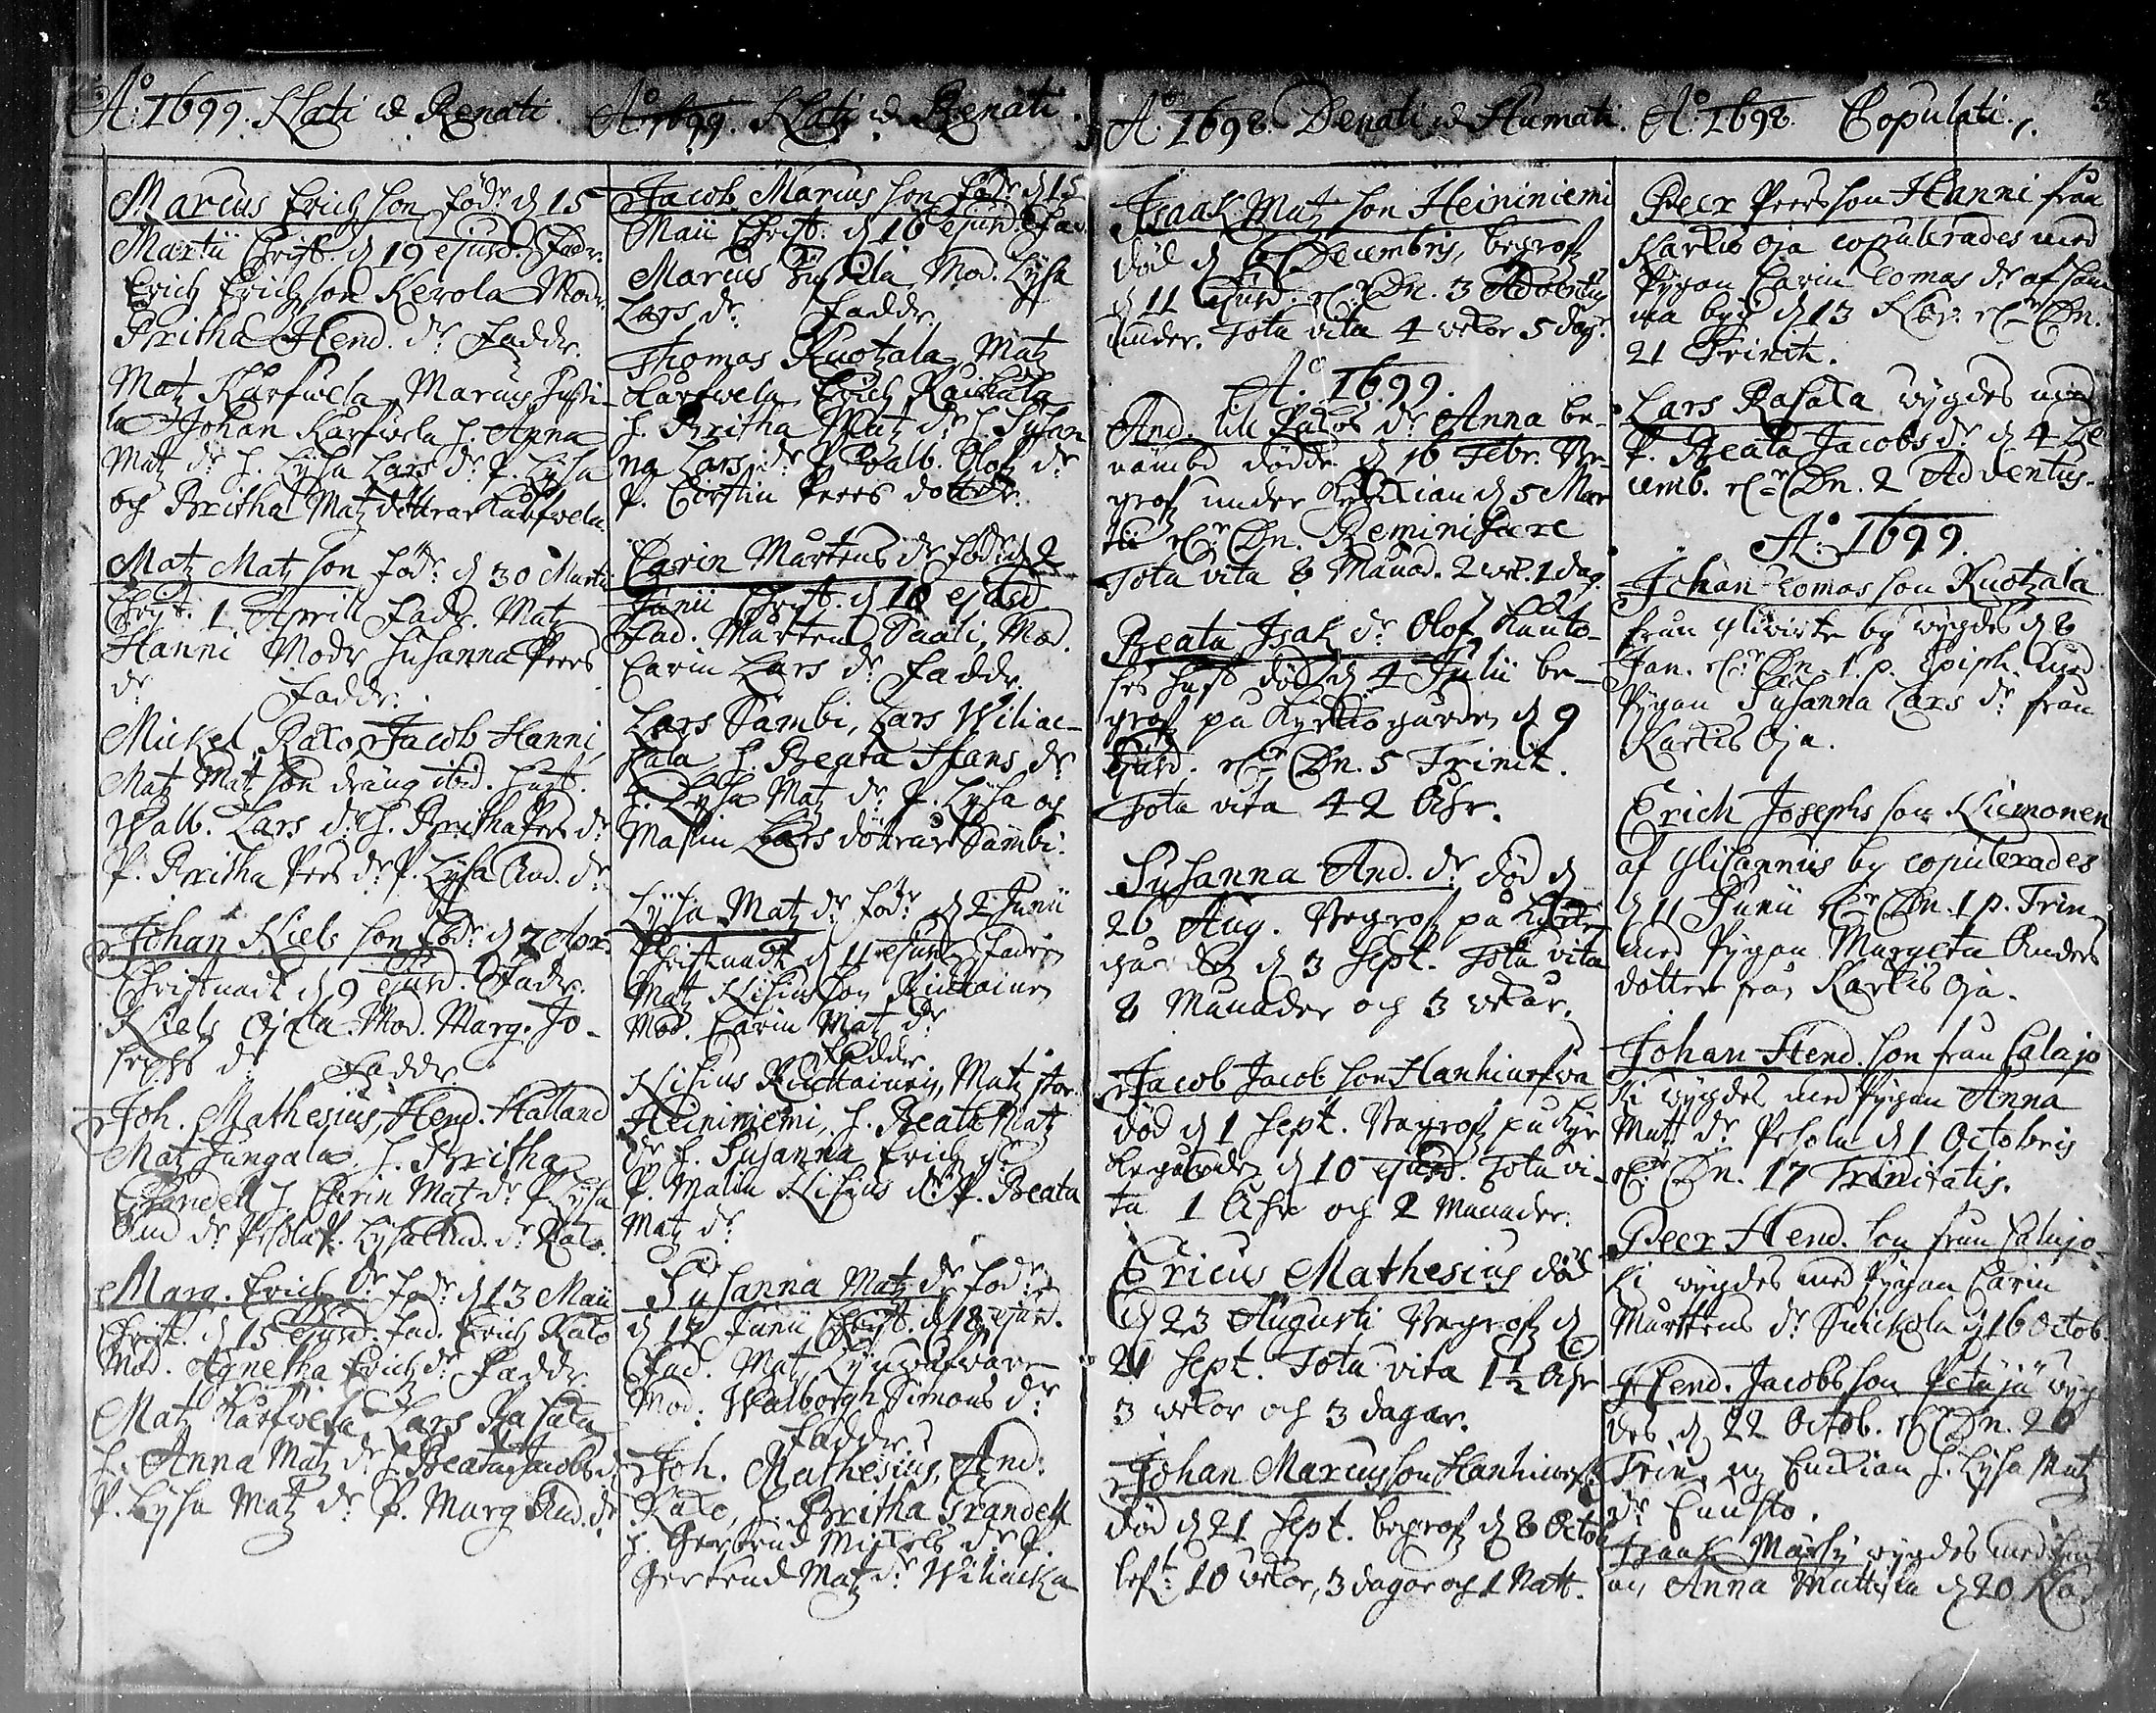 A:o 1699. Nati et Renati.
Marcus Erichson föd:r d 15
Martii Christ. d 19 ejusd. Fadr.
Erich Erichson Kerola Modr.
Britha Hend. dr. Faddr.
Matz Karfwela, Marcus
la Johan Karfwela h. Anna
Matz dr h. Lijsa Lars dr. P. Lijsa
och Britha Matz döttrar Karfwela
Matz Matzson föd:r d 30 Martii
Christ. 1 Aprill Fadr. Matz
Hanni Modr Susanna Peers
dr Faddr.
Mickel Kalo, Jacob Hanni,
Matz Matzson dräng ibid. hust.
Walb. Lars dr h. Britha Peers dr
P. Britha Peers dr P. Lijsa And. dr
Johan Niels son föd:r d 7 Apr.
Christnadt d 9 ejusd. Fadr.
Niels Ojala Mod. Marg. Jo-
sephs dr Faddr
Joh. Mathesius, Hend. Halland
Matz Jungala, h. Britha
Grandell h. Carin Matz dr P. Lijsa
And dr Pesola P. Lijsa And. dr Kalo.
Marg. Erichs dr föd:r d 13 Maii
Christ. d 15 ejusd. Fad. Erich Kalo
Mod. Agnetha Erichs dr Faddr.
Matz Karfwela Lars Rasala
h. Anna Matz dr h. Beata Jacobs d
P. Lijsa Matz dr P. Marg And. dr
A:o 1699. Nati et Renati.
Jacob Marcus son föd:r d 15
Maii Christ. d 16 ejusd. Fad.
Marcus Mod. Lijsa
Lars dr. Faddr.
Thomas Ruotzala, Matz
Karfwela, Erich Raudala
h. Britha Matz dr h. Susan
na Lars dr P. Walb. Olofs dr
P. Cirstin Peers dotter.
Carin Mårtens dr föd:r d 2
Junii Christ. d 10 ejusd
Fad. Mårten Paali, Mod.
Carin Lars dr. Faddr.
Lars Sambi, Lars Wiliac-
kala h. Beata Hans dr
h. Lijsa Matz dr P. Lijsa och
Malin Lars döttrar Sambi.
Lijsa Matz dr föd:r d 2 Junii
Christnadt d 11 ejusd. Fadren
Matz Nisius son
Mod. Carin Matz dr
Faddr
Nisius Matz
Heininiemi, h. Beata Matz
dr h. Susanna Erichs dr
P. Malin Nisius dr P. Beata
Matz dr
Susanna Matz dr föd:r
d 17 Junii Christ. d 18 ejusd.
Fad. Matz
Mod. Walborgh Simons dr
Faddr
Joh. Mathesius, And.
Kalo, h. Britha Grandell
h. Gertrud Mickels dr P.
Gertrud Matz dr Wiliacka
A:o 1698. Denati et Humati.
Isaak Matz son Heininiemi
död d 6 Decembris, begrofz
d 11 ejusd. Dn. 3 Adventus
under. Tota vita 4 wekor 5 dag.
A:o 1699.
And. dr Anna be-
nämbd dödde d 16 Febr. Be-
grofz under Kyrkian d 5 Mar
tii Dn. Reminiscere
Tota vita 8 Månad. 2 wek. 1 dag.
Beata Isak dr Olof
hust död d 4 Julii be-
grofz på Kyrkiogården d 9
Ejusd. Dn. 5 Trinit.
Tota vita 42 Åhr.
Susanna And. dr död d
26 Aug. Begrofz på Kyrkio
gården d 3 Sept. Tota vita
8 Månader och 3 wekor.
Jacob Jacob son Hanhinefwa
död d 1 Sept. Begrofz på Kyr
kogården d 10 ejusd. Tota vi-
ta 1 Åhr och 2 Månader.
Ericus Mathesius död
d 23 Augusti Begrofz d
24 Sept. Tota vita 1½ Åhr
3 wekor och 3 dagar.
Johan Marcusson
död d 21 Sept. begrofz d 8 Octob
left 10 wekor, 3 dagar och 1 Natt.
A:o 1698. Copulati.
Peer Peersson Hanni från
Karkis Oja copulerades med
Pygan Carin Tomas dr af sam
ma by d 13 Nov. Dn.
21 Trinit.
Lars Rasala wygdes med
P. Beata Jacobs dr d 4 De
cemb. Dn. 2 Adventus.
A:o 1699.
Johan Tomas son Ruotzala
från by wygdes d 8
Jan. Dn. 1 p. Epiph. med
Pygan Susanna Lars dr från
Karkis Oja.
Erich Josephs son Niemonen
af by copulerades
d 11 Junii Dn. 1 p. Trin.
med Pygan Margeta Anders
dotter från Karkis Oja.
Johan Hend. son från Calajo
ki wygdes med Pygan Anna
Matz dr Pesola d 1 Octobris
Dn. 17 Trinitatis.
Peer Hend. son från Calajo-
ki wygdes med Pygan Carin
Mårtens dr d 16 Octob.
Hend. Jacobs son Petäjä wyg
des d 22 Octob. Dn. 20
Trin. Enckian h. Lijsa Matz
dr
Isaak wygdes med
Anna d 20 Nov